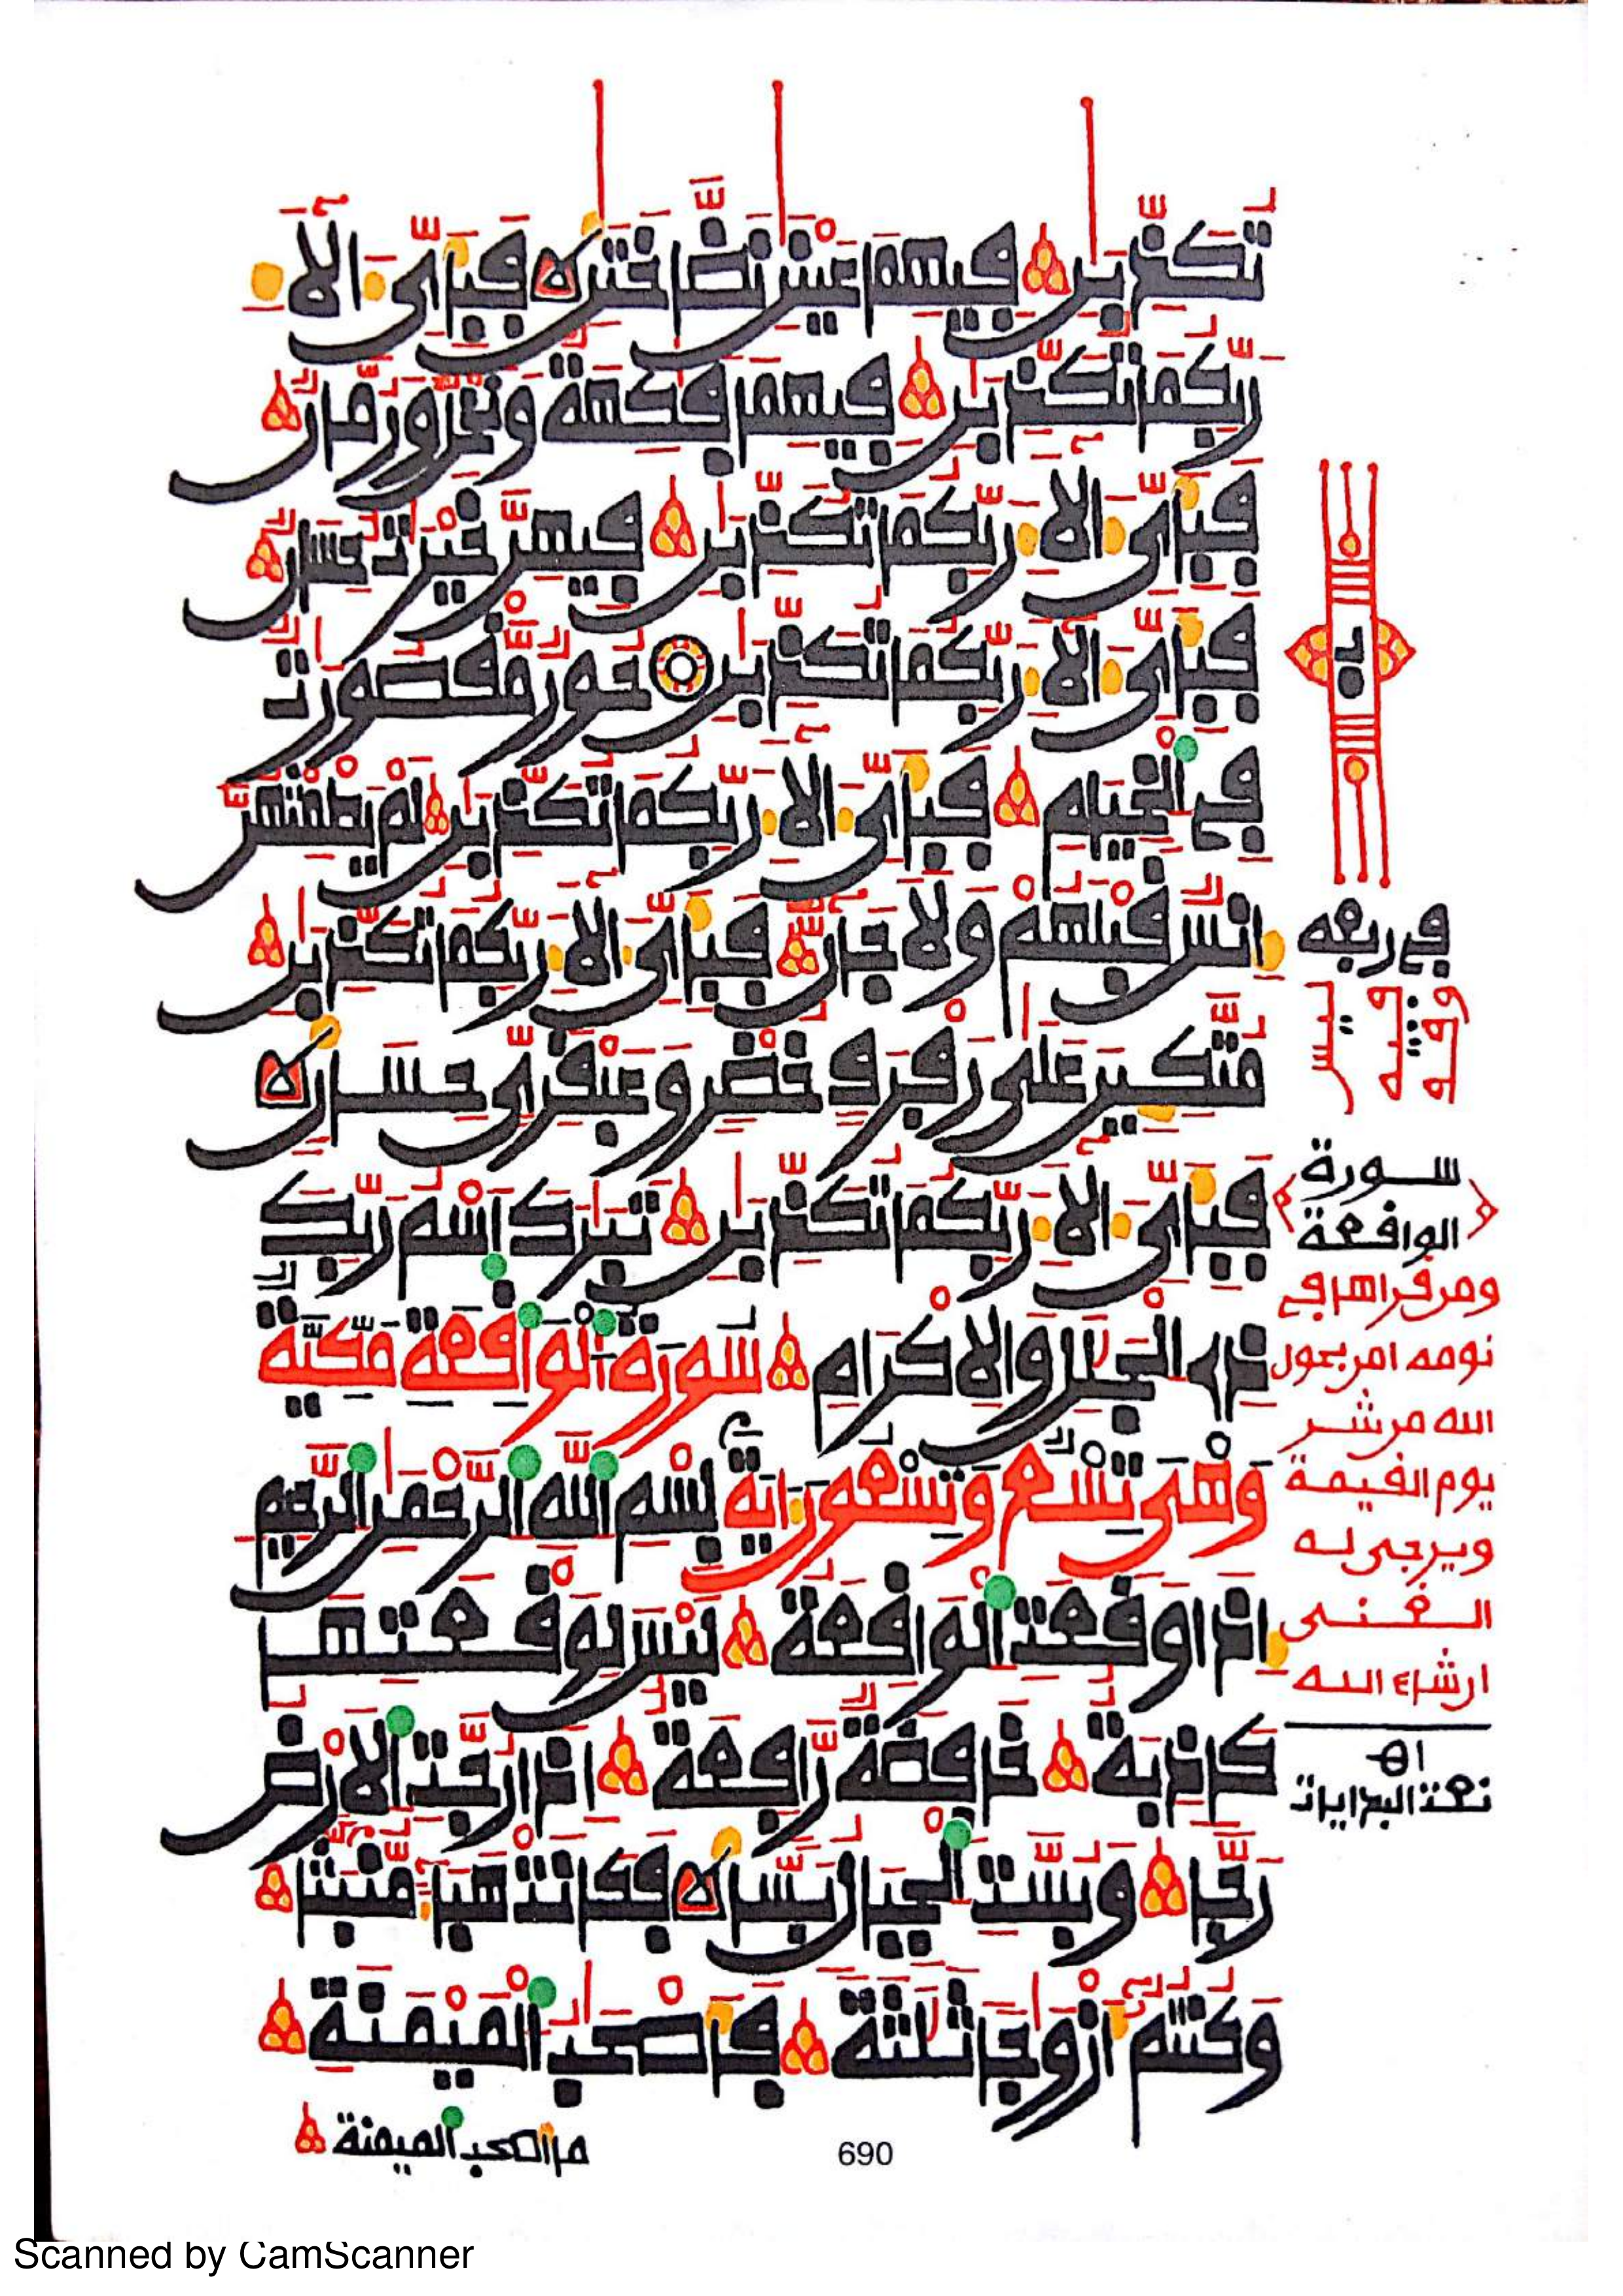 تُكَذِّبَٰنِ فِيهِمَا عَيْنَٰنِ نَضَّاخَتَٰنِ فَبِأَيِّ ءَالَآءِ
رَبِّكُمَا تُكَذِّبَٰنِ فِيهِمَا فَٰكِهَةٌ وَنَخْلٌ وَرُمَّانٌ
فَبِأَيِّ ءَالَآءِ رَبِّكُمَا تُكَذِّبَٰنِ فِيهِنَّ خَيْرَٰتٌ حِسَانٌ
فَبِأَيِّ ءَالَآءِ رَبِّكُمَا تُكَذِّبَٰنِ حُورٌ مَّقْصُورَٰتٌ
فِي الْخِيَامِ فَبِأَيِّ ءَالَآءِ رَبِّكُمَا تُكَذِّبَٰنِ لَمْ يَطْمِثْهُنَّ
إِنسٌ قَبْلَهُمْ وَلَا جَانٌّ فَبِأَيِّ ءَالَآءِ رَبِّكُمَا تُكَذِّبَٰنِ
مُتَّكِـِٔينَ عَلَىٰ رَفْرَفٍ خُضْرٍ وَعَبْقَرِيٍّ حِسَانٍ
فَبِأَيِّ ءَالَآءِ رَبِّكُمَا تُكَذِّبَٰنِ تَبَٰرَكَ اسْمُ رَبِّكَ
ذِي الْجَلَٰلِ وَالْإِكْرَامِ سُورَةُ الْوَاقِعَةِ مَكِّيَّةٌ
وَهْيَ تِسْعٌ وَتِسْعُونَ ءَايَةً بِسْمِ اللَّهِ الرَّحْمَٰنِ الرَّحِيمِ
إِذَا وَقَعَتِ الْوَاقِعَةُ لَيْسَ لِوَقْعَتِهَا
كَاذِبَةٌ خَافِضَةٌ رَّافِعَةٌ إِذَا رُجَّتِ الْأَرْضُ
رَجًّا وَبُسَّتِ الْجِبَالُ بَسًّا فَكَانَتْ هَبَآءً مُّنبَثًّا
وَكُنتُمْ أَزْوَٰجًا ثَلَٰثَةً فَأَصْحَٰبُ الْمَيْمَنَةِ
مَا أَصْحَٰبُ الْمَيْمَنَةِ
في ربعه
سورة
الواقعة
ومن قراها في
نومه امن بحول
الله من شر
يوم القيمة
ويرجى له
الغنى
ان شاء الله
اهـ
نعت البدايات
690
Scanned by CamScanner